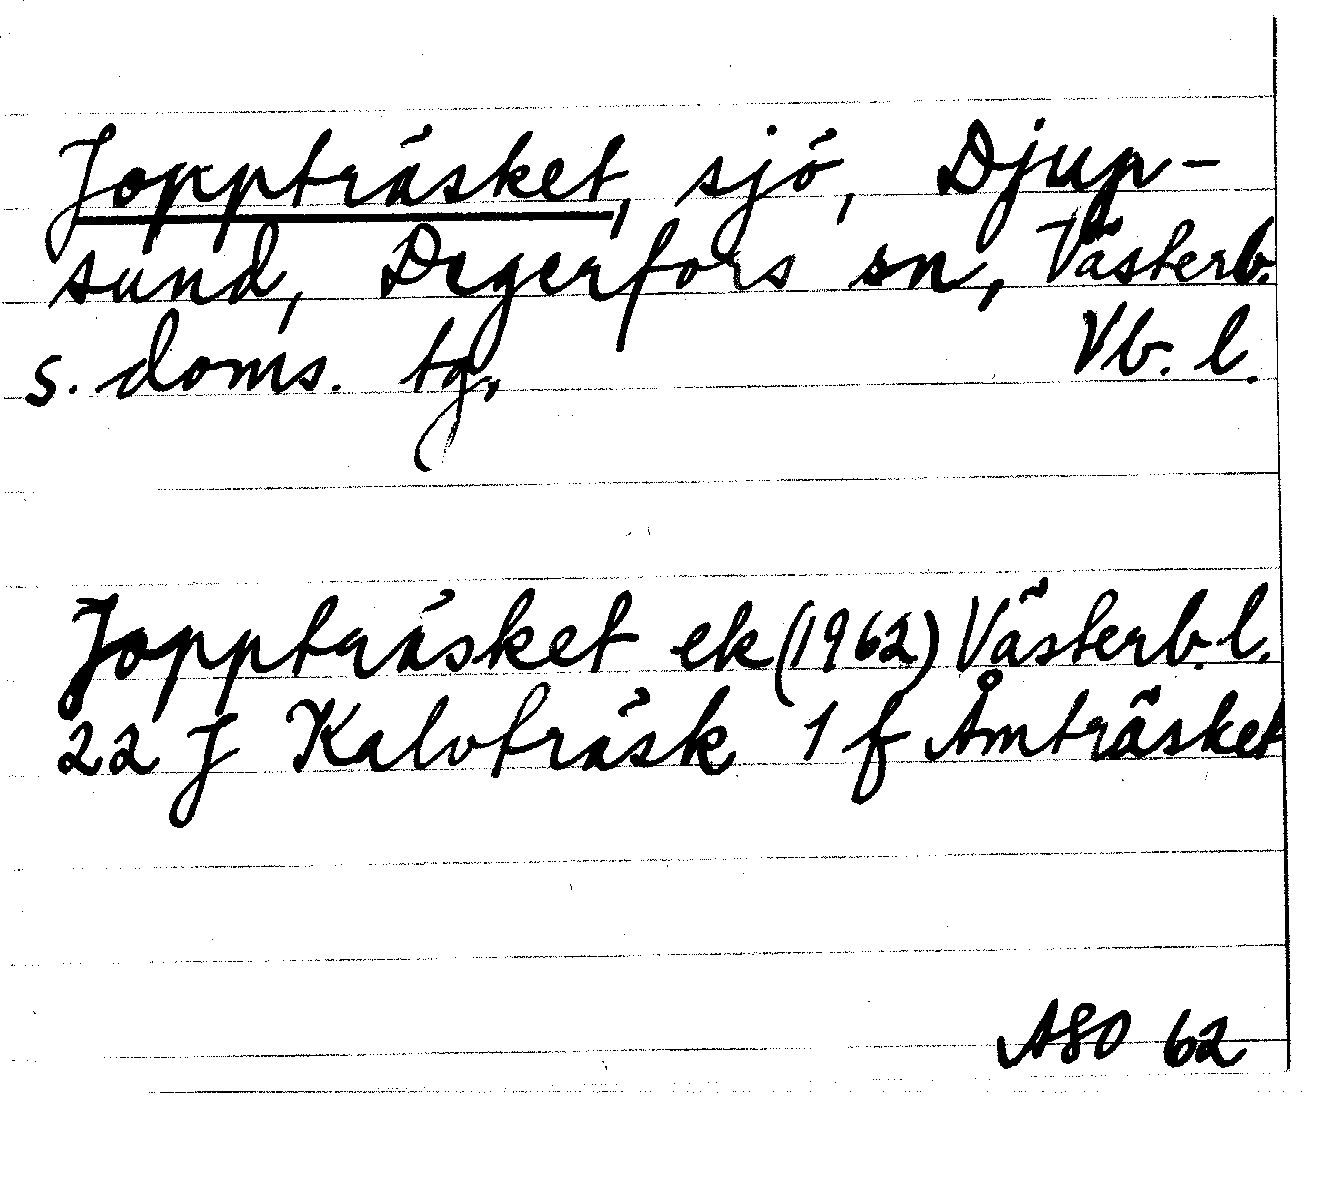 Joppträsket, sjö, Djup-
sund, Degerfors sn, Västerb.
s. doms. tg, Vb. l.
Joppträsket ek (1962) Västerb. l.
22 J Kalvträsk 1 f Åmträsket
ASO 62